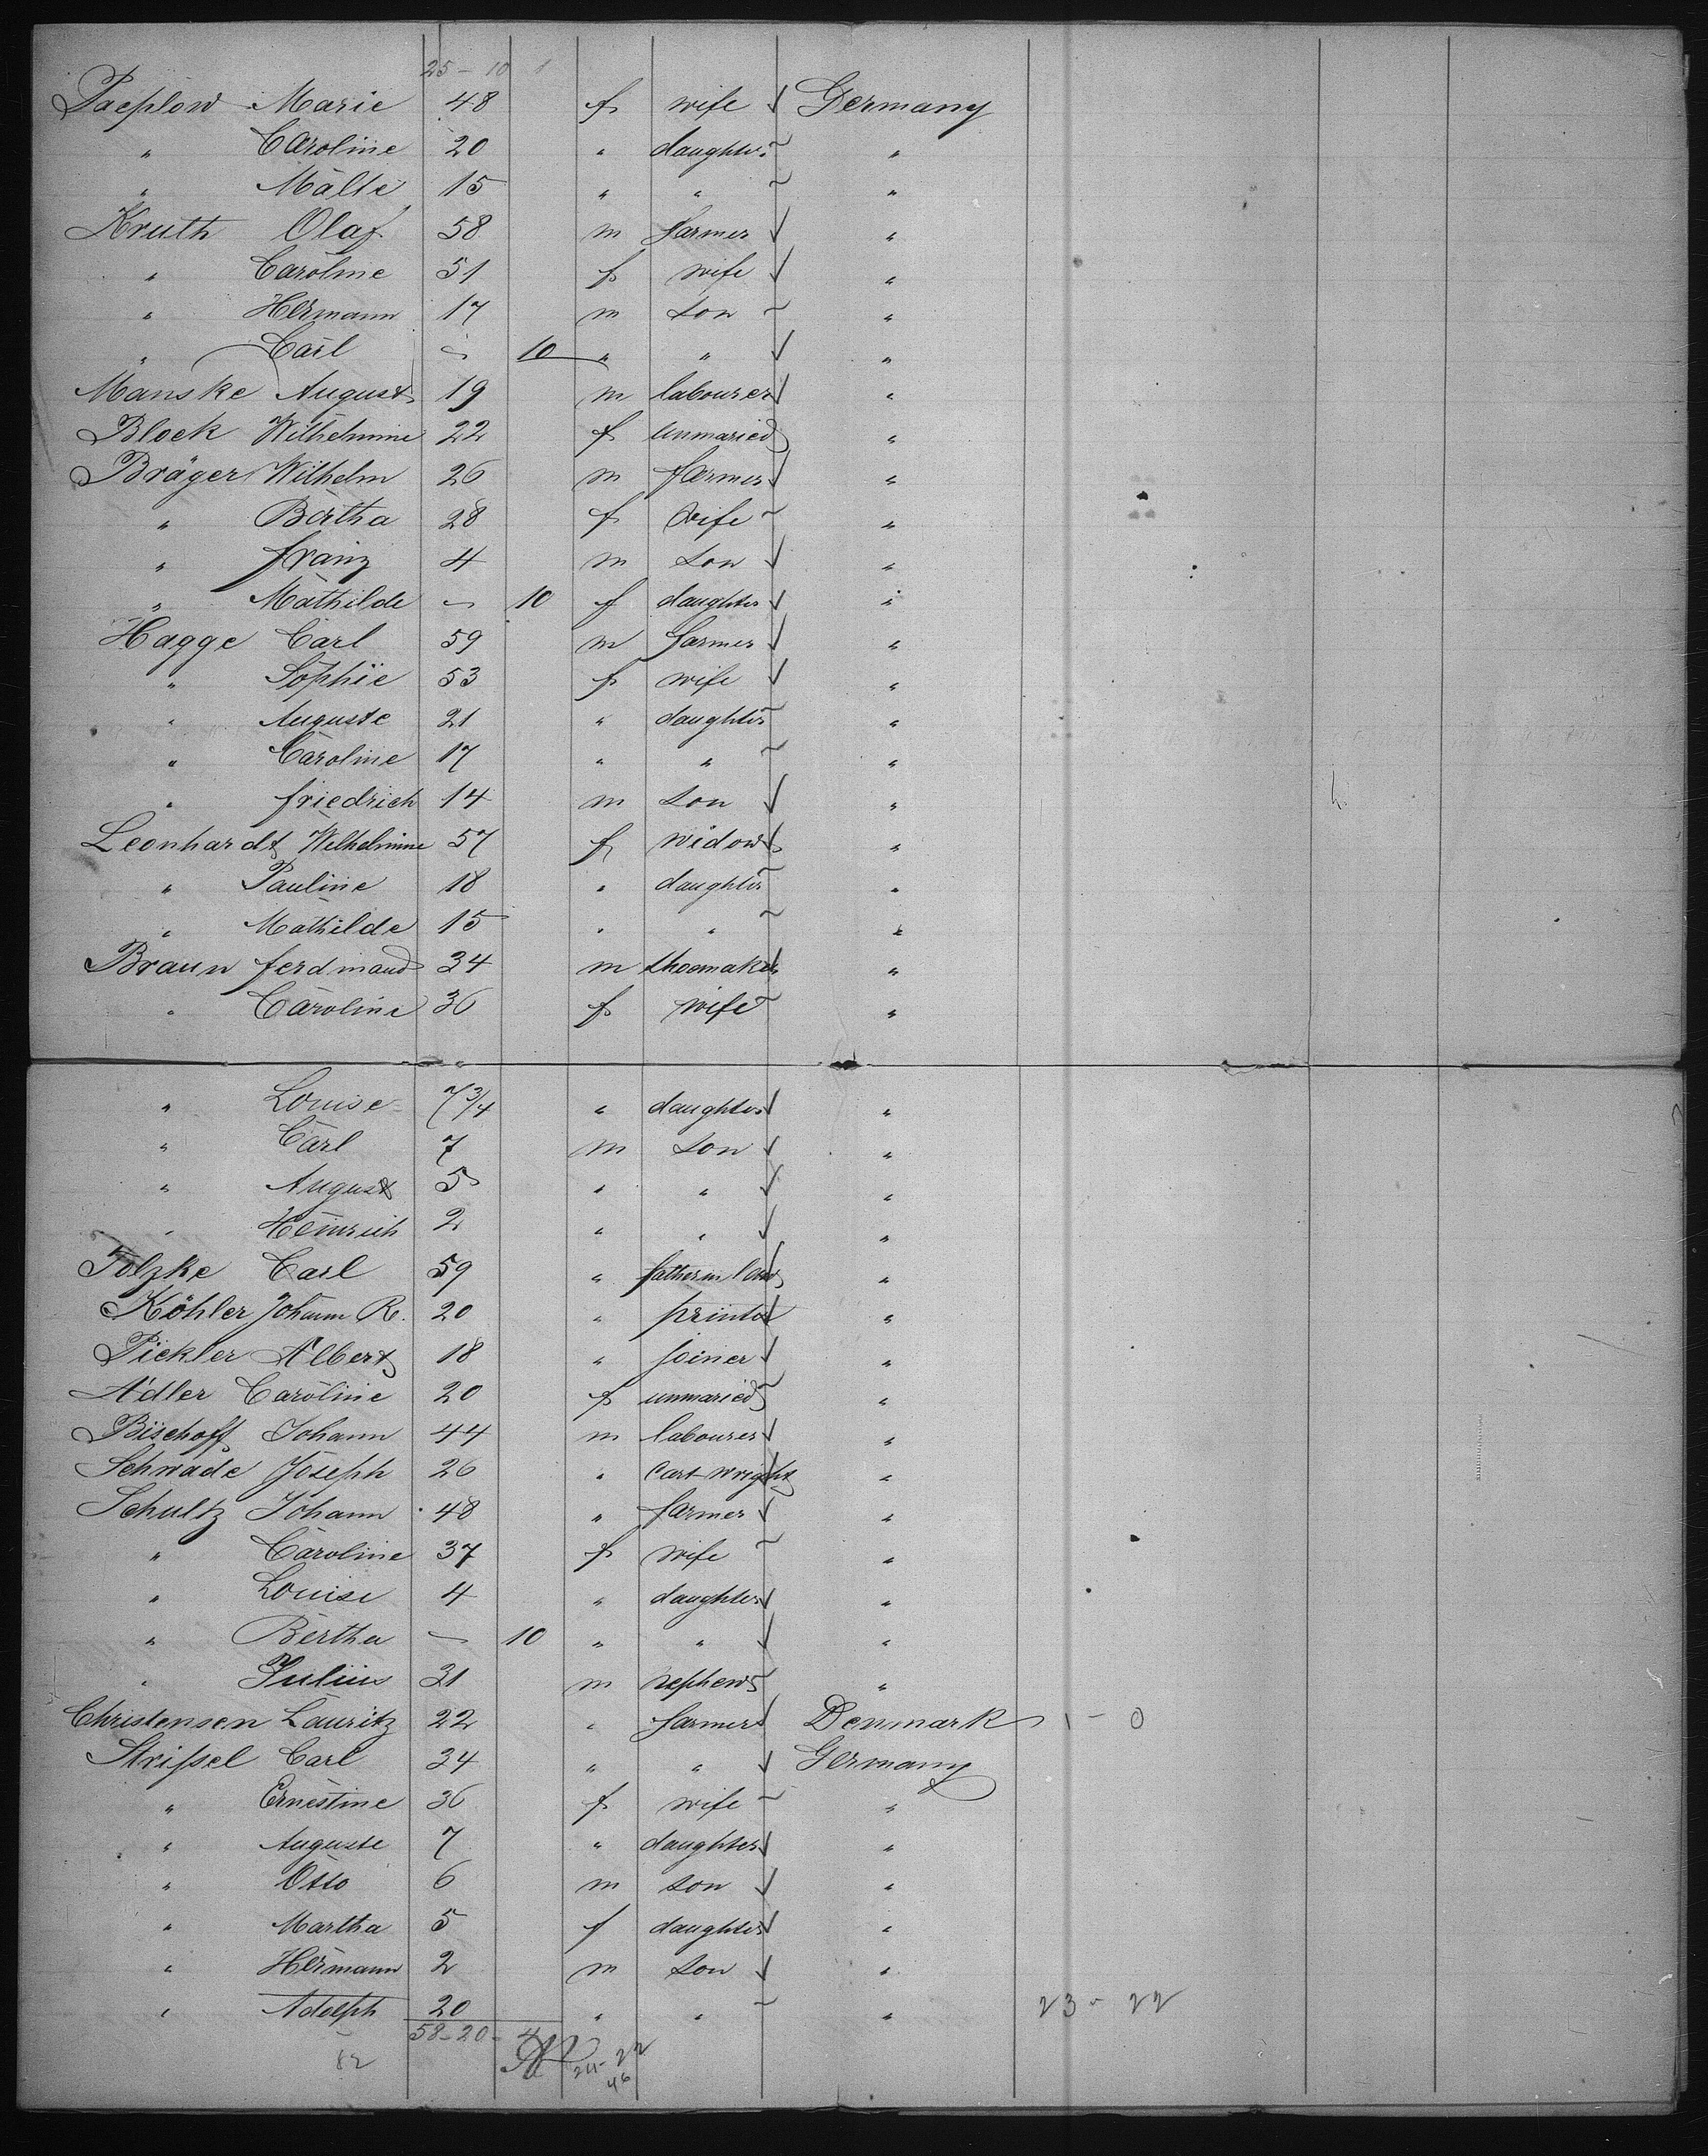 25 - 10 1
Paeplow Marie 48 f wife Germany
" Caroline 20 " daughter "
" Malte 15 " " "
Kruth Olaf 58 m farmer "
" Caroline 51 f wife "
" Hermann 17 m son "
" Carl - 10 " " "
Manske August 19 m labourer "
Block Wilhelmine 22 f unmaried "
Bräger Wilhelm 26 m farmer "
" Bertha 28 f wife "
" Franz 4 m son "
" Mathilde - 10 f daughter "
Hagge Carl 59 m farmer "
" Sophie 53 f wife "
" Auguste 21 " daughter "
" Caroline 17 " " "
" Friedrich 14 m son "
Leonhardt Wilhelmine 57 f widow "
" Pauline 18 " daughter "
" Mathilde 15 " " "
Braun Ferdinand 34 m shoemaker "
" Caroline 36 f wife "
" Louise 7 3/4 " daughter "
" Carl 7 m son "
" August 5 " " "
" Heinrich 2 " " "
Folzke Carl 59 " father in law "
Köhler Johann R. 20 " printer "
Pickler Albert 18 " joiner "
Adler Caroline 20 f unmaried "
Bischoff Johann 44 m labourer "
Schwade Joseph 26 " cart wright "
Schultz Johann 48 " farmer "
" Caroline 37 f wife "
" Louise 4 " daughter "
" Bertha - 10 " " "
" Julius 21 m nephew "
Christensen Lauritz 22 " farmer Denmark 1 - 0
Strissel Carl 34 " " Germany
" Ernestine 36 f wife "
" Auguste 7 " daughter "
" Otto 6 m son "
" Martha 5 f daughter "
" Hermann 2 m son "
" Adolph 20 " " " 23 - 22
58 - 20 - 4
82 24 - 22
46